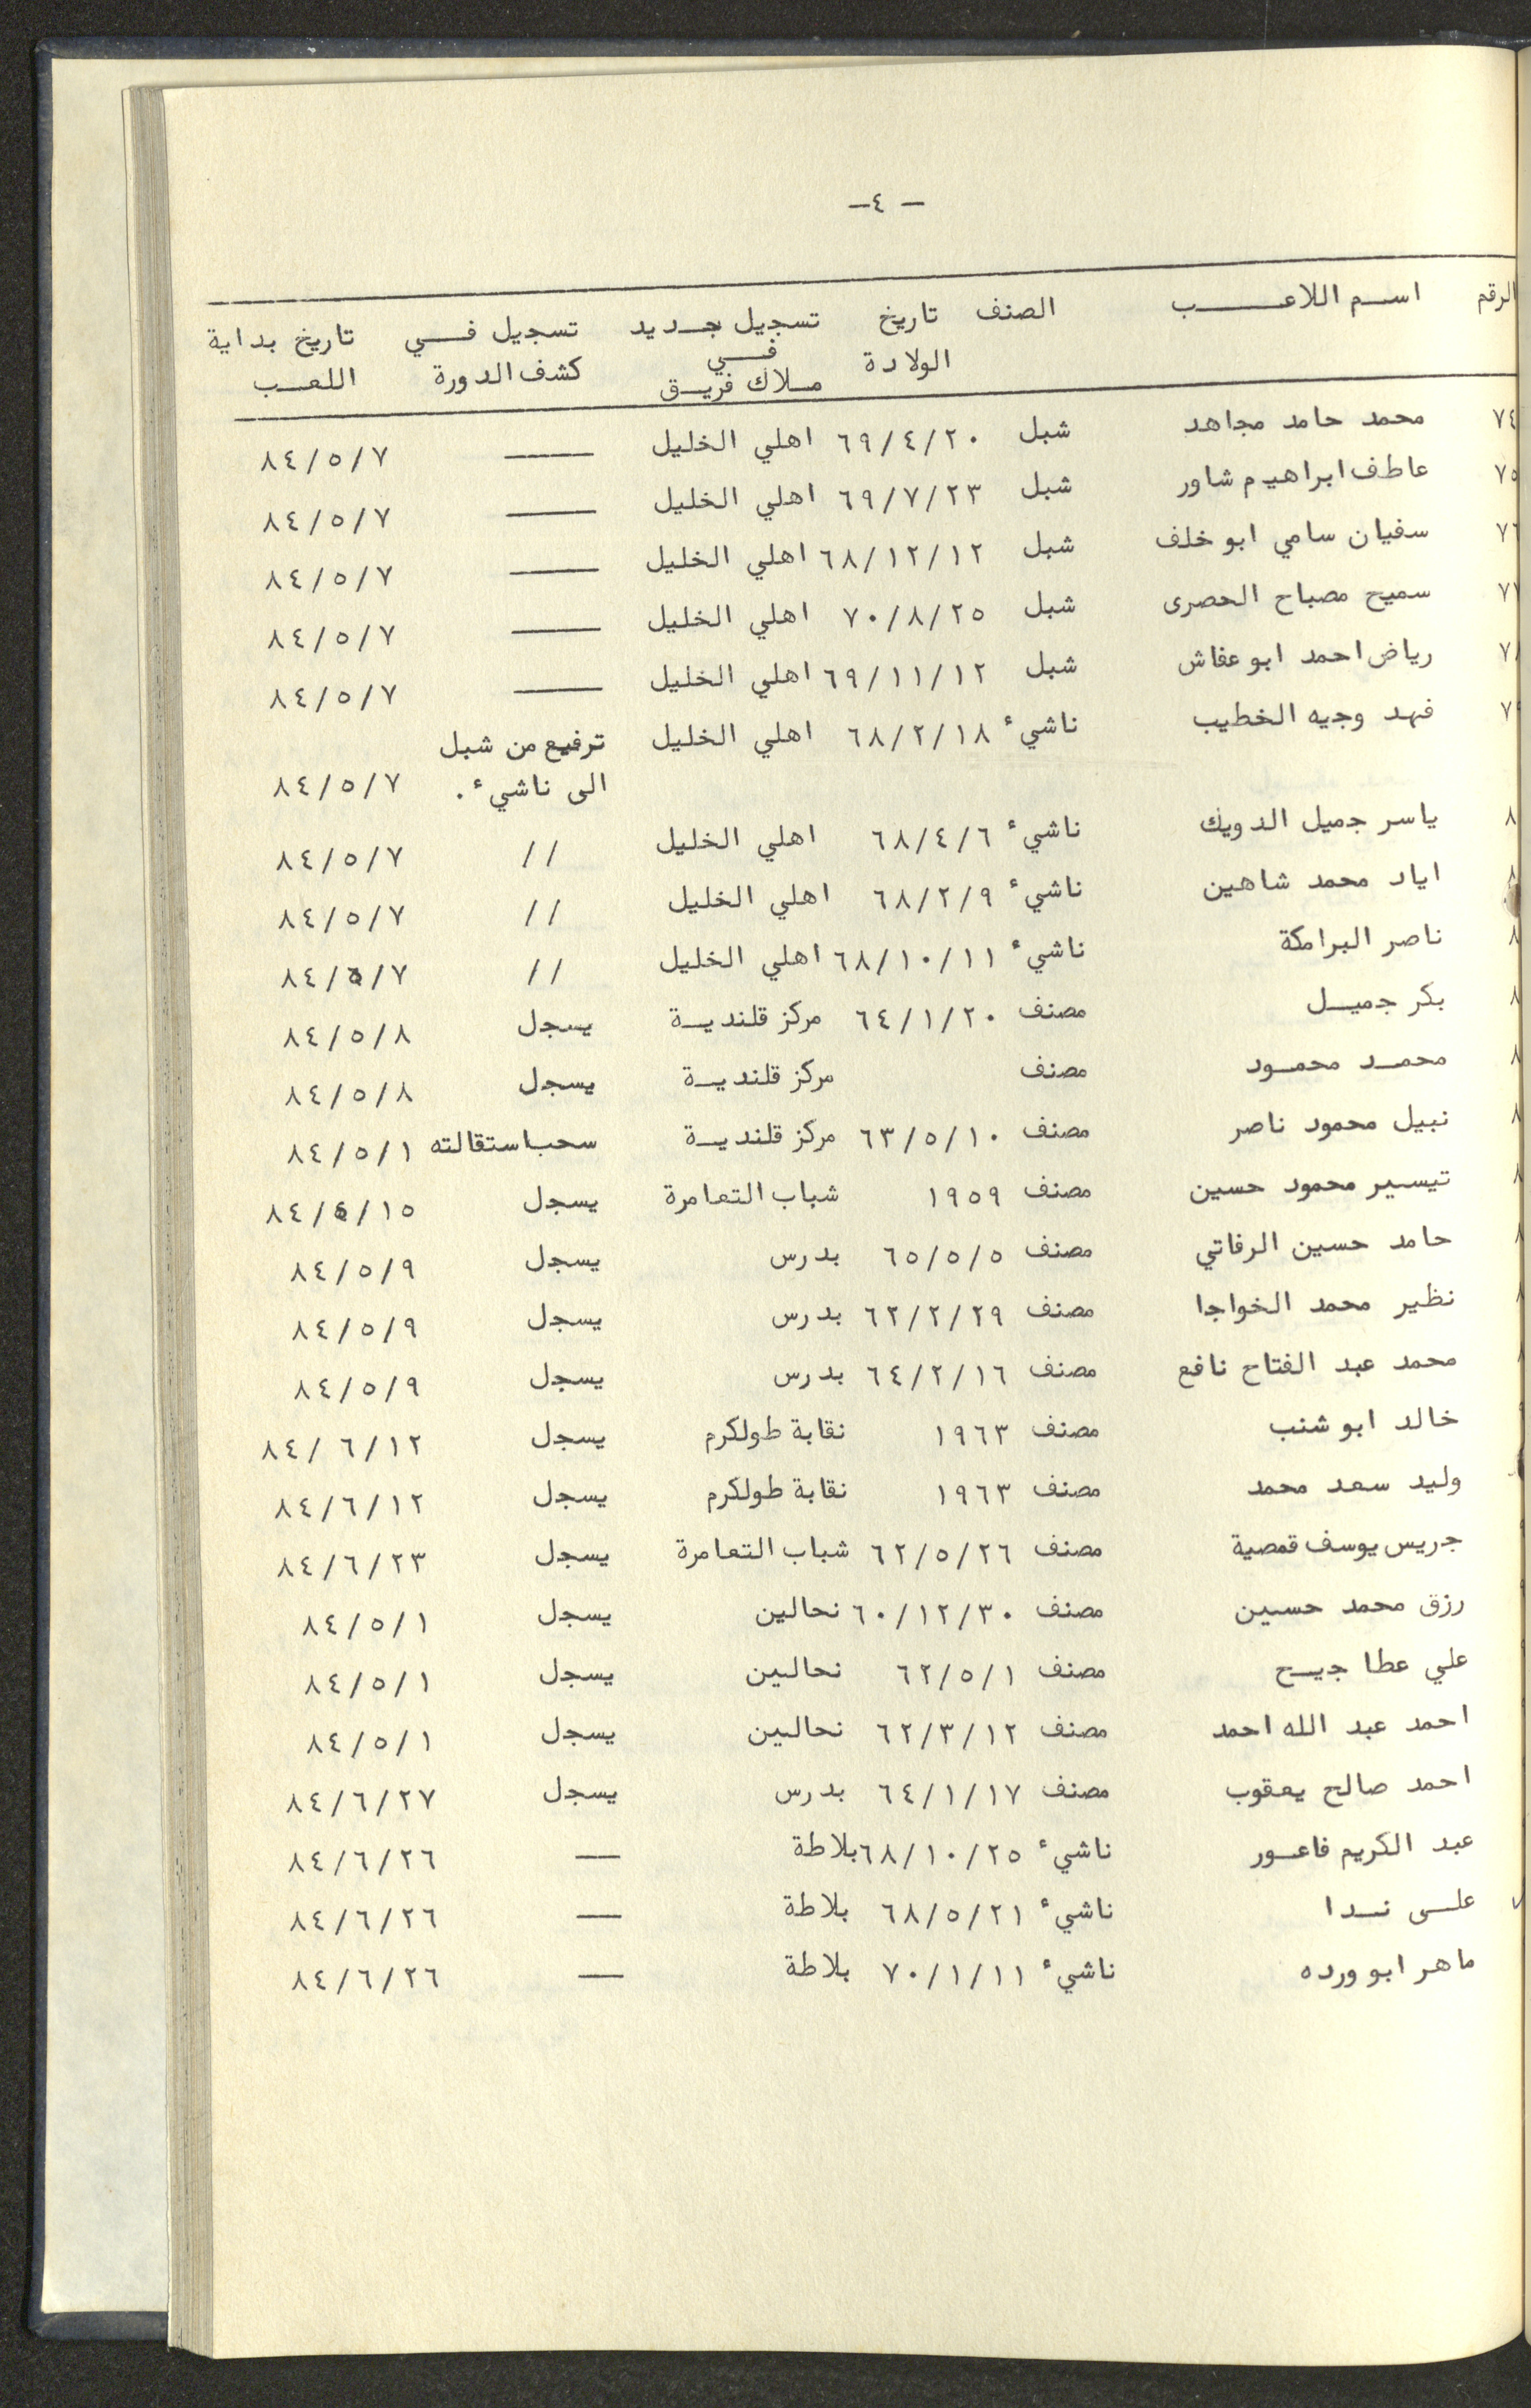 - ٤-
الرقم اسم اللاعب الصنف تاريخ الولادة تسجيل جديد في ملاك فريق تسجيل في كشف الدورة تاريخ بداية اللعب
٧٤ محمد حامد مجاهد شبل ٦٩/٤/٢٠ اهلي الخليل ــــ ٨٤/٥/٧
٧٥ عاطف ابراهيم شاور شبل ٦٩/٧/٢٣ اهلي الخليل ــــ ٨٤/٥/٧
٧٦ سفيان سامي ابو خلف شبل ٦٨/١٢/١٢ اهلي الخليل ــــ ٨٤/٥/٧
سميح مصباح الحصرى شبل ٧٠/٨/٢٥ اهلي الخليل ــــ ٨٤/٥/٧
رياض احمد ابو عفاش شبل ٦٩/١١/١٢ اهلي الخليل ــــ ٨٤/٥/٧
فهد وجيه الخطيب ناشيء ٦٨/٢/١٨ اهلي الخليل ترفيع من شبل
الى ناشيء . ٨٤/٥/٧
ياسر جميل الدويك ناشيء ٦٨/٤/٦ اهلي الخليل // ٨٤/٥/٧
اياد محمد شاهين ناشيء ٦٨/٢/٩ اهلي الخليل // ٨٤/٥/٧
ناصر البرامكة ناشيء ٦٨/١٠/١١ اهلي الخليل // ٨٤/٥/٧
بكر جميل مصنف ٦٤/١/٢٠ مركز قلندية يسجل ٨٤/٥/٨
محمد محمود مصنف مركز قلندية يسجل ٨٤/٥/٨
نبيل محمود ناصر مصنف ٦٣/٥/١٠ مركز قلندية سحب استقالته ٨٤/٥/١
تيسير محمود حسين مصنف ١٩٥٩ شباب التعامرة يسجل
حامد حسين الرفاتي مصنف ٦٥/٥/٥ بدرس يسجل ٨٤/٥/٩
نظير محمد الخواجا مصنف ٦٢/٢/٢٩ بدرس يسجل ٨٤/٥/٩
محمد عبد الفتاح نافع مصنف ٦٤/٢/١٦ بدرس يسجل ٨٤/٥/٩
خالد ابو شنب مصنف ١٩٦٣ نقابة طولكرم يسجل ٨٤/٦/١٢
وليد سعد محمد مصنف ١٩٦٣ نقابة طولكرم يسجل ٨٤/٦/١٢
جريس يوسف قمصية مصنف ٦٢/٥/٢٦ شباب التعامرة يسجل ٨٤/٦/٢٣
رزق محمد حسين مصنف ٦٠/١٢/٣٠ نحالين يسجل ٨٤/٥/١
علي عطا جيح مصنف ٦٢/٥/١ نحالين يسجل ٨٤/٥/١
احمد عبد الله احمد مصنف ٦٢/٣/١٢ نحالين يسجل ٨٤/٥/١
احمد صالح يعقوب مصنف ٦٤/١/١٧ بدرس يسجل ٨٤/٦/٢٧
عبد الكريم فاعور ناشيء ٦٨/١٠/٢٥ بلاطة ــ ٨٤/٦/٢٦
علي ندا ناشيء ٦٨/٥/٢١ بلاطة ــ ٨٤/٦/٢٦
ماهر ابو ورده ناشيء ٧٠/١/١١ بلاطة ــ ٨٤/٦/٢٦